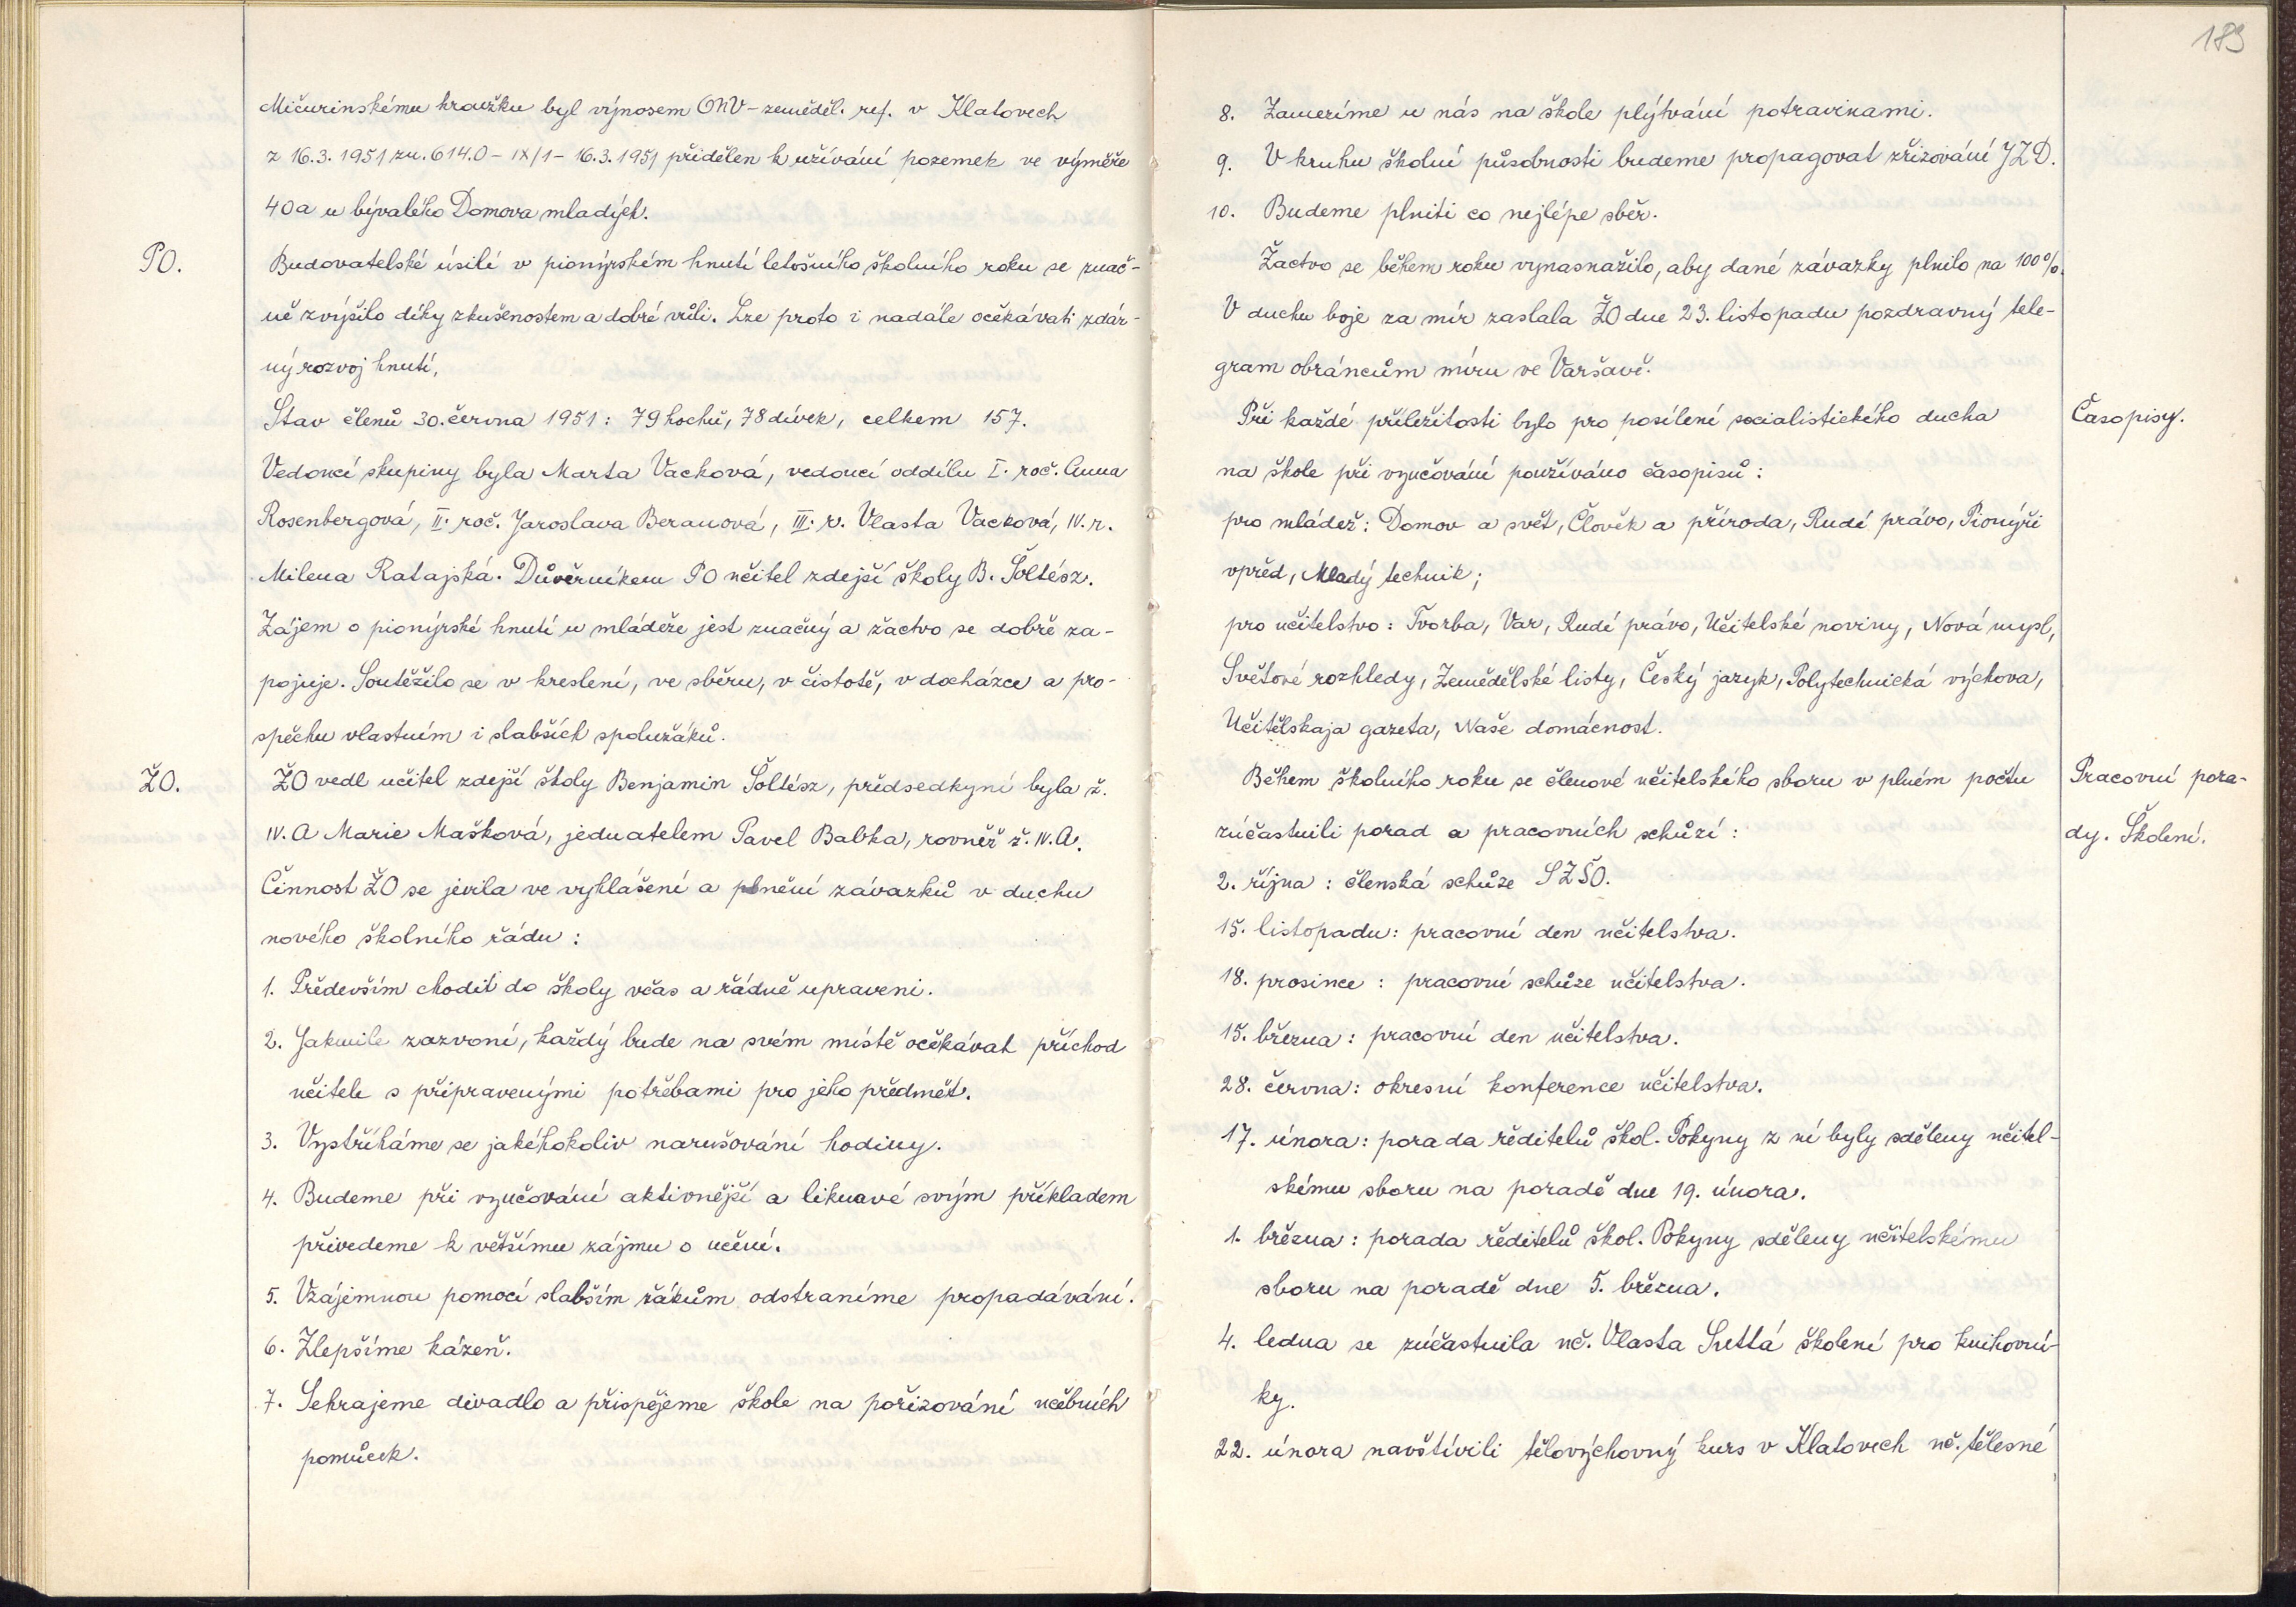 Mičurinskému kroužku byl výnosem ONV - zeměděl. ref. v Klatovech
z 16.3.1951 zn. 614.0 - IX/1 - 16.3.1951 přidělen k užívání pozemek ve výměře
40a u bývalého Domova mladých.
PO.
Budovatelské úsilí v pionýrském hnutí letošního školního roku se znač-
ně zvýšilo díky zkušenostem a dobré vůli. Lze proto i nadále očekávati zdár-
ný rozvoj hnutí.
Stav členů 30. června 1951: 79 hochů, 78 dívek, celkem 157.
Vedoucí skupiny byla Marta Vacková, vedoucí oddílu I. roč. Anna
Rosenbergová, II. roč. Jaroslava Beranová, III. r. Vlasta Vacková, IV. r.
Milena Ratajská. Důvěrníkem PO učitel zdejší školy B. Šoltész.
Zájem o pionýrské hnutí u mládeže jest značný a žactvo se dobře za-
pojuje. Soutěžilo se v kreslení, ve sběru, v čistotě, v docházce a pro-
spěchu vlastním i slabších spolužáků.
ŽO.
ŽO vedl učitel zdejší školy Benjamin Šoltész, předsedkyní byla ž.
IV. A Marie Mašková, jednatelem Pavel Babka, rovněž ž. IV. A.
Činnost ŽO se jevila ve vyhlášení a plnění závazků v duchu
nového školního řádu:
1. Především chodit do školy včas a řádně upraveni.
2. Jakmile zazvoní, každý bude na svém místě očekávat příchod
učitele s připravenými potřebami pro jeho předmět.
3. Vystříháme se jakéhokoliv narušování hodiny.
4. Budeme při vyučování aktivnější a liknavé svým příkladem
přivedeme k většímu zájmu o učení.
5. Vzájemnou pomocí slabším žákům odstraníme propadávání.
6. Zlepšíme kázeň.
7. Sehrajeme divadlo a přispějeme škole na pořizování učebních
pomůcek.
189
8. Zamezíme u nás na škole plýtvání potravinami.
9. V kruhu školní působnosti budeme propagovat zřizování JZD.
10. Budeme plniti co nejlépe sběr.
Žactvo se během roku vynasnažilo, aby dané závazky plnilo na 100%.
V duchu boje za mír zaslala ŽO dne 23. listopadu pozdravný tele-
gram obráncům míru ve Varšavě.
Při každé příležitosti bylo pro posílení socialistického ducha
Časopisy.
na škole při vyučování používáno časopisů:
pro mládež: Domov a svět, Člověk a příroda, Rudé právo, Pionýři
vpřed, Mladý technik;
pro učitelstvo: Tvorba, Var, Rudé právo, Učitelské noviny, Nová mysl,
Světové rozhledy, Zemědělské listy, Český jazyk, Polytechnická výchova,
Učitělskaja gazeta, Naše domácnost.
Během školního roku se členové učitelského sboru v plném počtu
Pracovní pora-
zúčastnili porad a pracovních schůzí:
dy. Školení.
2. října: členská schůze SZŠO.
15. listopadu: pracovní den učitelstva.
18. prosince: pracovní schůze učitelstva.
15. března: pracovní den učitelstva.
28. června: okresní konference učitelstva.
17. února: porada ředitelů škol. Pokyny z ní byly sděleny učitel-
skému sboru na poradě dne 19. února.
1. března: porada ředitelů škol. Pokyny sděleny učitelskému
sboru na poradě dne 5. března.
4. ledna se zúčastnila uč. Vlasta Světlá školení pro knihovní-
ky.
22. února navštívili tělovýchovný kurs v Klatovech uč. tělesné